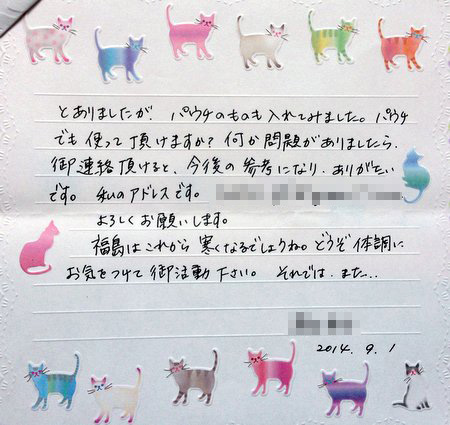 とありましたが、パウチのものも入れてみました。パウチ
でも使って頂けますか？何か問題がありましたら、
御連絡頂けると、今後の参考になり、ありがたい
です。私のアドレスです。
よろしくお願いします。
福島はこれから寒くなるでしょうね。どうぞ体調に
お気をつけて御活動下さい。それでは、また..
2014. 9. 1